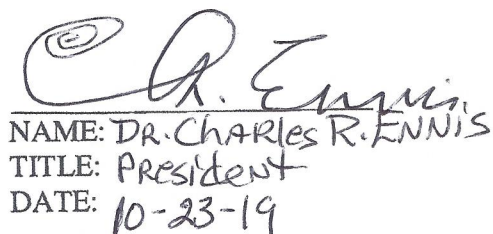 Ch. Ennis
NAME: DR. CHARles R. ENNiS
TITLE: President
DATE: 10-23-19